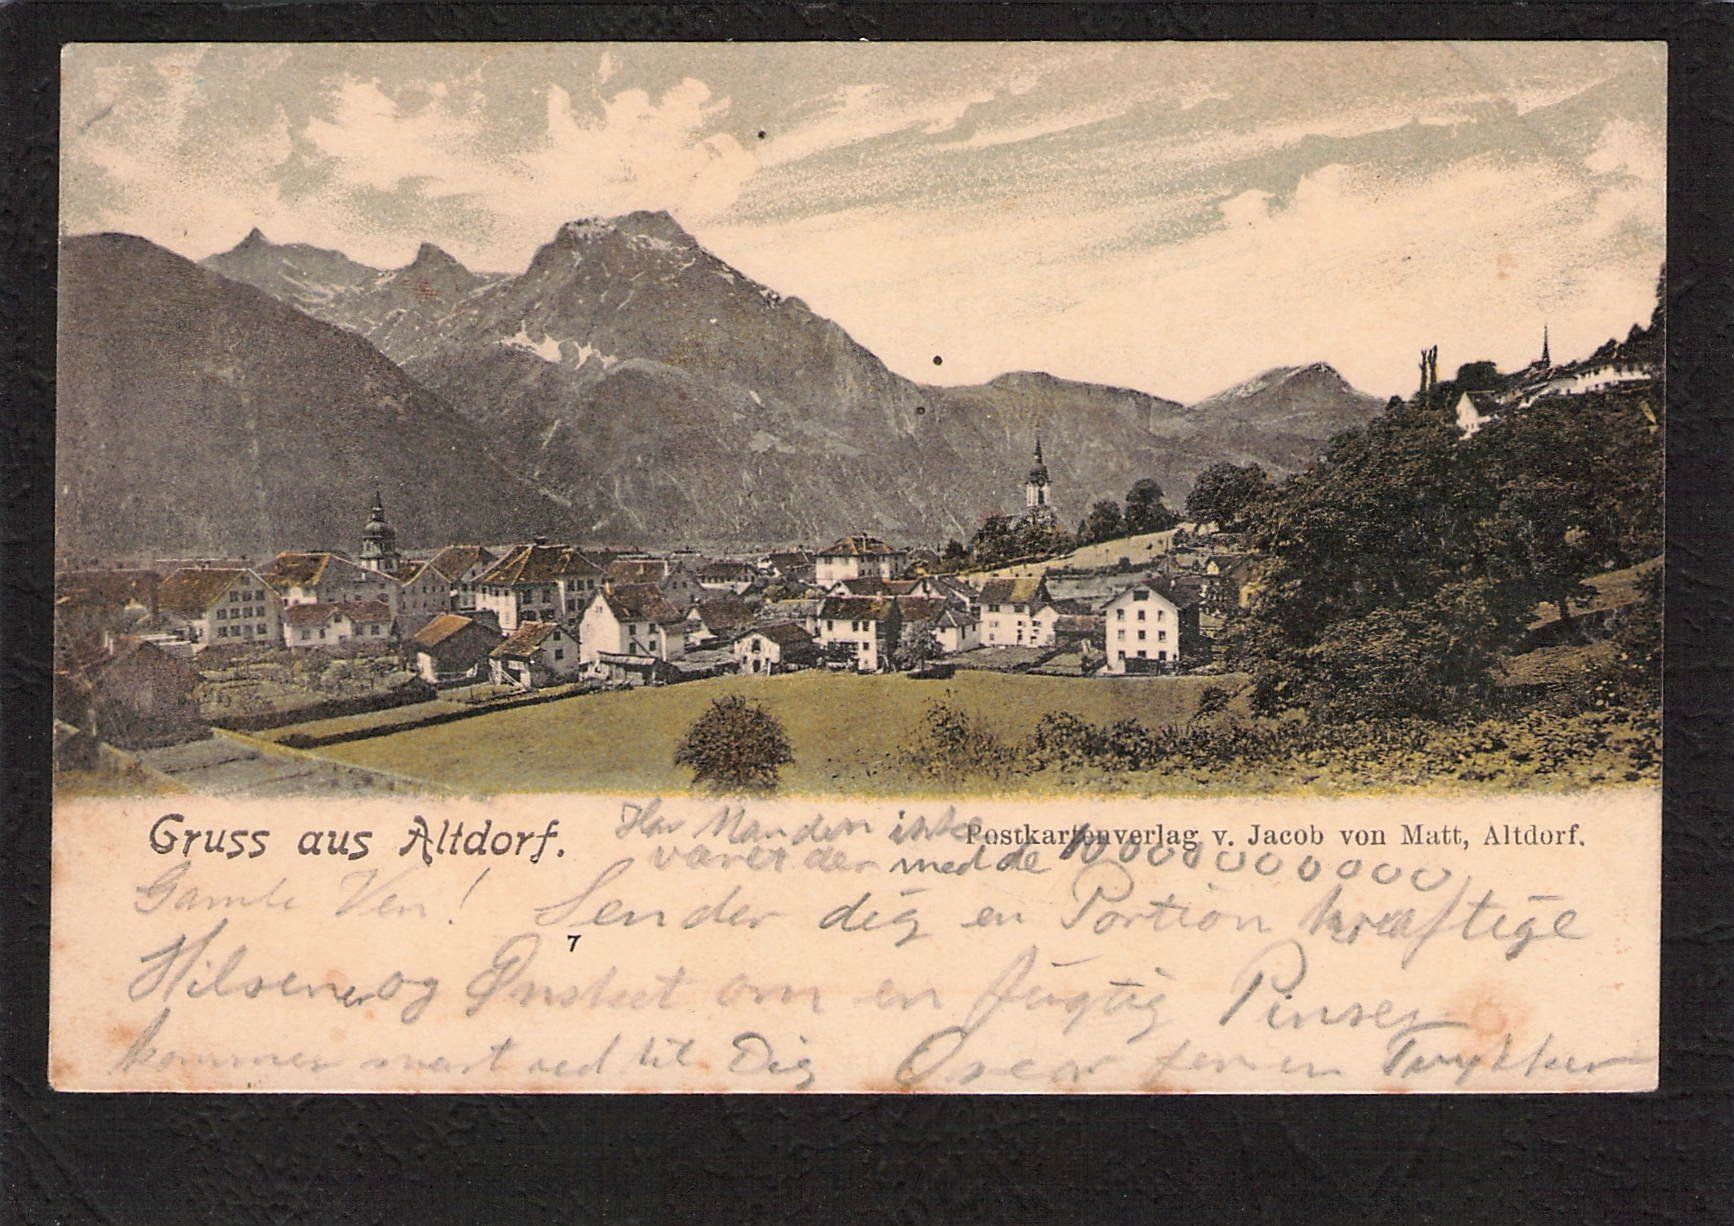 Gruss aus Altdorf.
Postkartenverlag v. Jacob von Matt, Altdorf.
Har Manden ikke
været der med de 10 000 000 000 0
Gamle Ven! Sender dig en Portion kraftige
7
Hilsener og Ønsket om en fugtig Pinse,
kommer snart ned til Dig Oscar